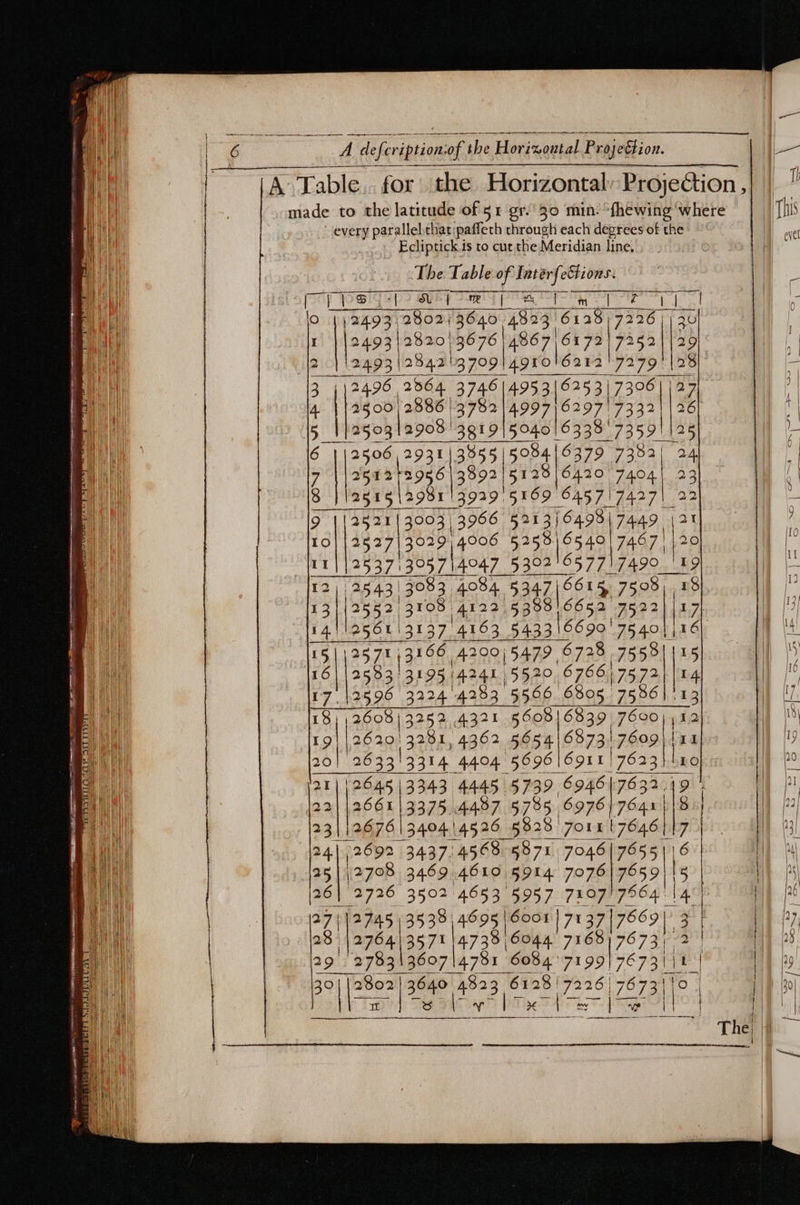 6 A deſcription of the Horizontal Projection.
A Table for the Horizontal Projection,
made to the latitude of 51 gr. 30 min. ſhewing where
every parallel that paſſeth through each degrees of the
Ecliptick is to cut the Meridian line.
The Table of Interſections.
♋ ♌ ♍ ♎ ♏ ♐
0 2493 2802 3640 4823 6128 7226 30
1 2493 2820 3676 4867 6172 7252 29
2 2493 2842 3709 4910 6212 7279 28
3 2496 2864 3746 4953 6253 7306 27
4 2500 2886 3782 4997 6297 7332 26
5 2503 2908 3819 5040 6338 7359 25
6 2506 2931 3855 5084 6379 7382 24
7 2512 2956 3892 5128 6420 7404 23
8 2515 2981 3929 5169 6457 7427 22
9 2521 3003 3966 5213 6498 7449 21
10 2527 3029 4006 5258 6540 7467 20
11 2537 3057 4047 5302 6577 7490 19
12 2543 3083 4084 5347 6615 7508 18
13 2552 3108 4122 5388 6652 7522 17
14 2561 3137 4163 5433 6690 7540 16
15 2571 3166 4200 5479 6728 7558 15
16 2583 3195 4241 5520 6766 7572 14
17 2596 3224 4283 5566 6805 7586 13
18 2608 3252 4321 5608 6839 7600 12
19 2620 3281 4362 5654 6873 7609 11
20 2633 3314 4404 5696 6911 7623 10
21 2645 3343 4445 5739 6946 7632 9
22 2661 3375 4487 5785 6976 7641 8
23 2676 3404 4526 5828 7011 7646 7
24 2692 3437 4568 5871 7046 7655 6
25 2708 3469 4610 5914 7076 7659 5
26 2726 3502 4653 5957 7107 7664 4
27 2745 3538 4695 6001 7137 7669 3
28 2764 3571 4738 6044 7168 7673 2
29 2783 3607 4781 6084 7199 7673 1
30 2802 3640 4823 6128 7226 7673 0
♊ ♉ ♈ ♓ ♒ ♑
The